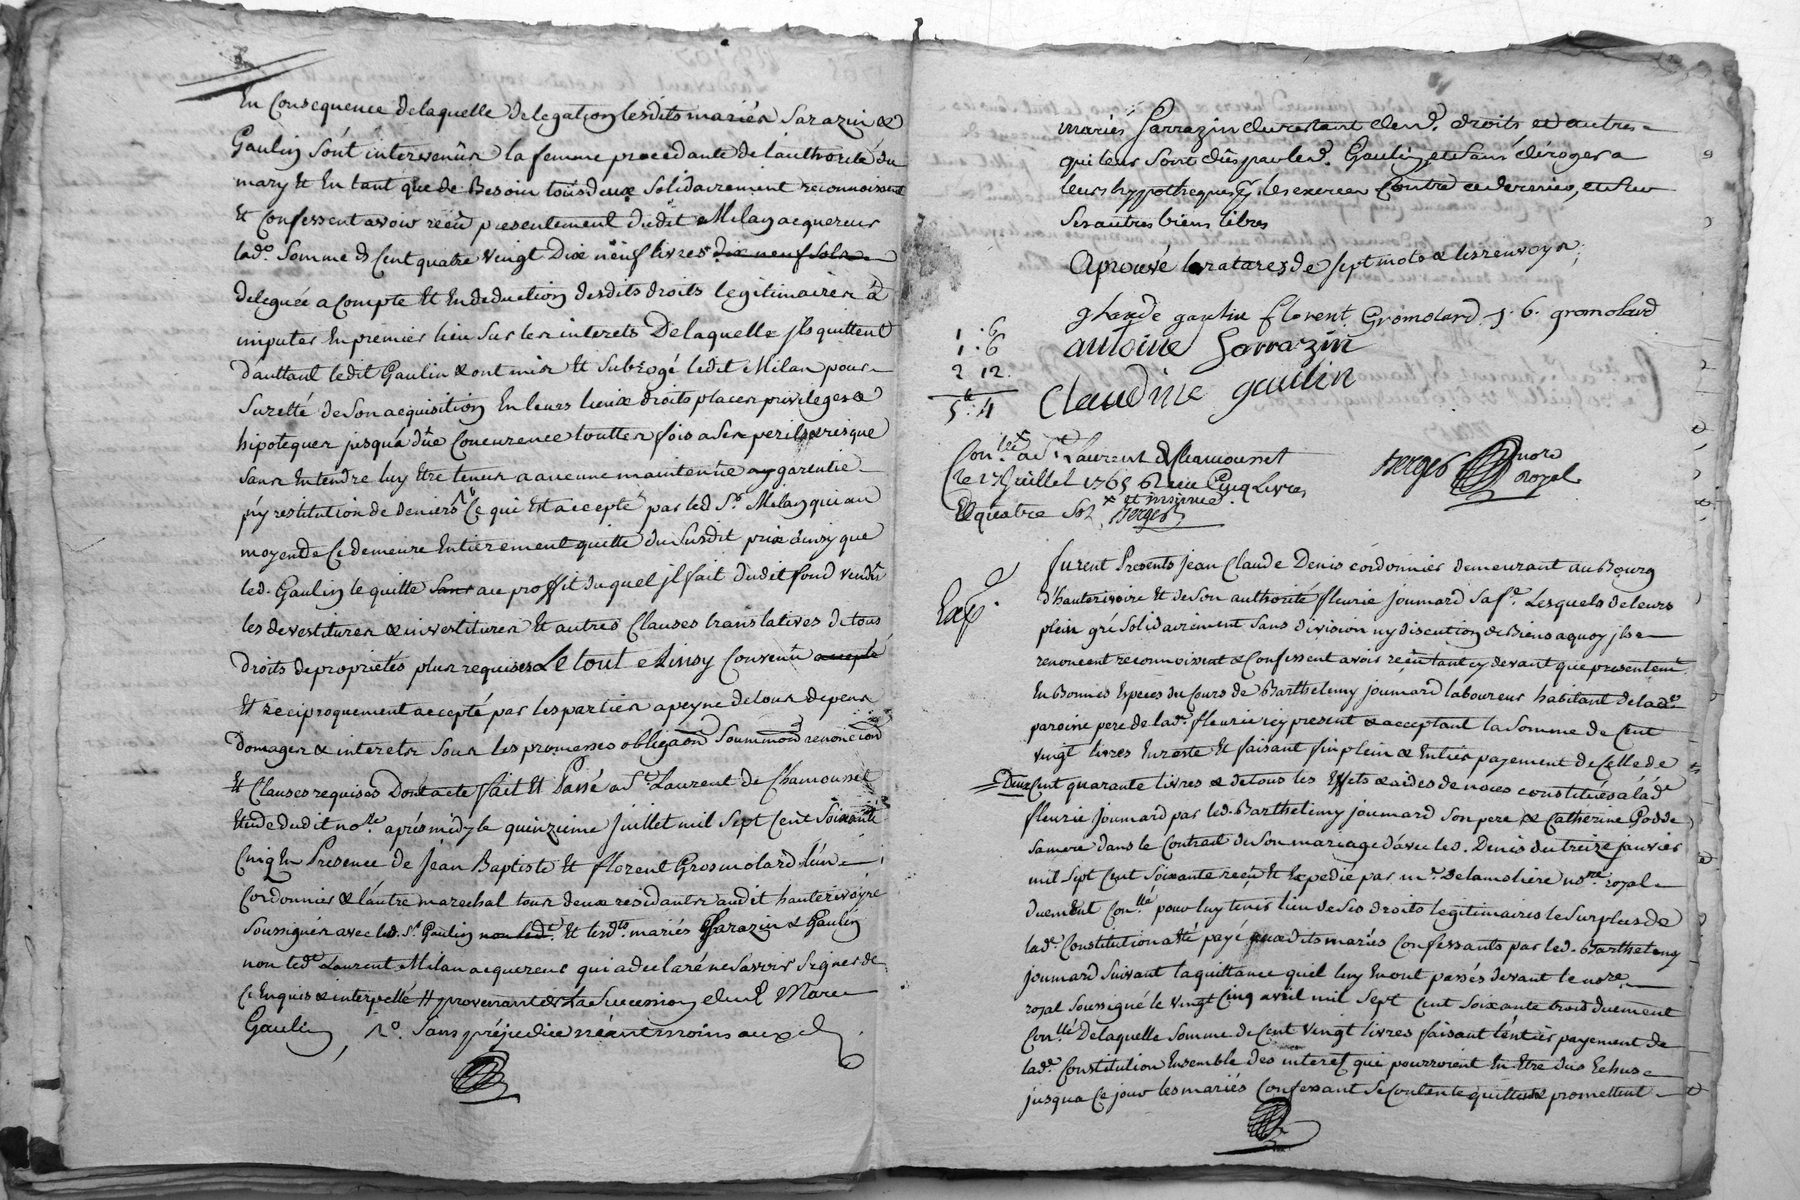 En Consequence delaquelle delegaõn lesdits mariés Sarazin &
Gaulin sont intervenûs la femme procedante de lauthorité du
mary Et En tant que de Besoin tous deux solidairement reconnoissent
Et Confessent avoir reçû presentement dudit Milan acquereur
lade. Somme de Cent quatre vingt Dix neuf livres dix neuf sols
deleguée a Compte Et En deduction desdits droits legitimaires a
imputer En premier lieu sur les interets De laquelle jls quittent
dauttant ledit Gaulin & ont mis Et Subrogé ledit Milan pour
Suretté de son acquisition En leurs lieux droits places privileges &
hipoteques jusqu'a düe Concurrence touttes fois a ses perils & risque
sans Entendre luy Etre tenus a aucune maintenüe ny garentie
ny restitution de deniers Ce qui Est accepté par led Sr. Milan qui au
moyen de Ce demeure Entierement quitte du susdit prix ainsy que
led. Gaulin le quitte sans au proffit duquel jl fait dudit fond vendu
les devestitures & investitures Et autres Clauses translatives de tous
droits de proprietés plus requises Le tout Ainsy Convenu accepté
Et reciproquement accepté par les parties a peyne de tous depens
Domages & interets sous les promesses obligaõns Soummõns renonciõns
Et Clauses requises Dont acte fait Et Passé a St. Laurent de Chamousset
Etude dudit nore. après midy le quinzieme Juillet mil sept Cent Soixante
Cinq En Presence de Jean Baptiste Et florent Grosmolard l'un
Cordonnier & lautre marechal tous deux residants audit hauterivoyre
Soussignés avec led. Sr. Gaulin non ledt. Et lesdts. mariés Sarazin & Gaulin
non ledt. Laurent Milan acquereur qui a declaré ne savoir signer de
Ce Enquis & interpellé # provenant de la Sucession dud Marc
Gaulin, sans préjudice néantmoins aux d
mariés Sarrazin du restant dend. droits et autres
qui leur sont dûs par led. Gaulin, et sans déroger a
leurs hypotheques les exercer Contre ce dernier, et sur
ses autres biens libres
Aprouvé la ratures de sept mots & les renvoys;
glande gaulin florent Gromolard J. B. gromolard
1 . 6
1 . 6
2 12.
5 : 4
antoine Sarrazin
Claudine gaulin
Conlé. a St Laurent de Chamousset
Ce 27 Juillet 1765 Reçu Cinq Livres
& quatre sols et insinué. Berger
Berger Nore royal
Exp.
furent Presents Jean Claude Denis cordonnier demeurant au Bourg
d'hauterivoire Et de son authorité fleurie Joumard sa fe. Lesquels de leurs
plein gré solidairement sans division ny discution de Biens a quoy jls
renoncent reconnoissent & Confessent avoir reçû tant cy devant que presentemt.
En Bonnes Especes du Cours de Barthelemy joumard laboureur habitant de lade.
paroisse pere de lade. fleurie icy present & acceptant la Somme de Cent
vingt livres En reste Et faisant fin plein & Entier payement de Celle de
Deux Cent quarante livres & de tous les Effets & aides de noces constitués a lade
fleurie Joumard par led. Barthelemy joumard son pere & Catherine Godde
sa mere dans le Contrat de son mariage d'avec led. Denis du treize janvier
mil sept Cent soixante reçû Et Expedié par me. Delamoliere nore. royal
duement Conlé pour luy tenir lieu de ses droits legitimaires le surplus de
lade. Constitution a été payé auxdits mariés Confessants par led. Barthelemy
joumard suivant la quittance qu'il luy En ont passés devant le nore.
royal soussigné le vingt Cinq avril mil sept Cent soixante trois duement
Conlé Delaquelle somme de Cent vingt livres faisant l'entier payement de
lade. Constitution Ensemble des interets qui pourroient En Etre dus Echus
jusqua Ce jour les mariés Confessant se Contente quittent & promettent